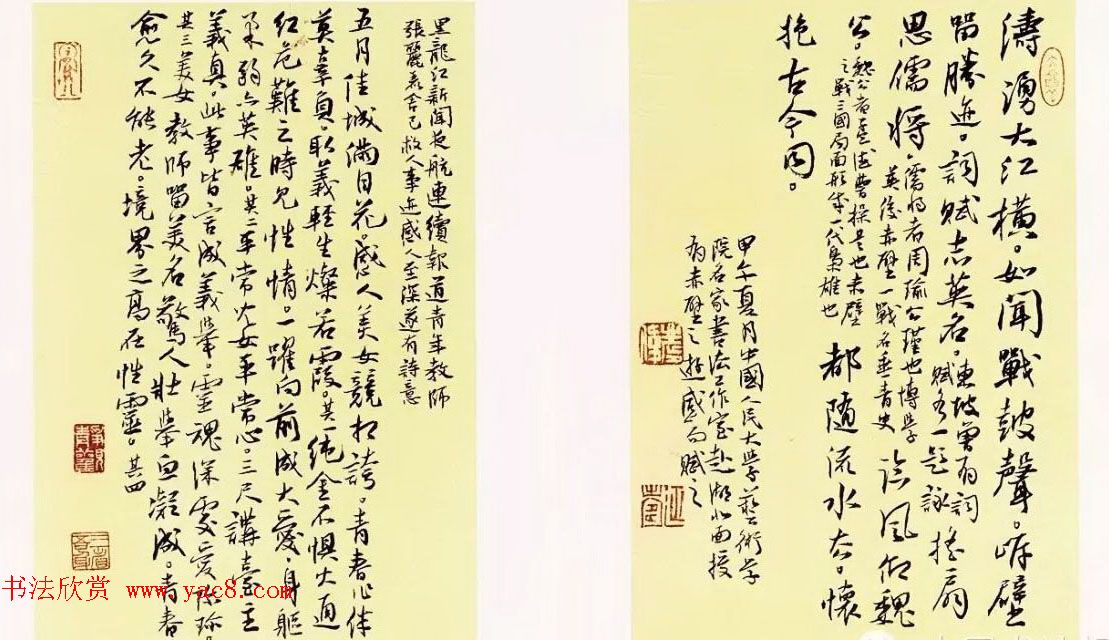 濤湧大江橫。如聞戰鼓聲。岸壁
留勝迹。詞賦志英名。東坡曾有詞
賦各一題詠 搖扇
思儒將。儒將者周瑜公瑾也博學
英俊赤壁一戰名垂青史 論風仰魏
公。魏公者孟德曹操是也赤壁
之戰三國局面形成一代梟雄也 都随流水去。懷
抱古今同。
甲午夏月中國人民大學藝術學
院名家書法工作室赴湖北面授
有赤壁之遊感而賦之
黑龍江新聞夜航連續報道青年教師
張麗莉舍己救人事迹感人至深遂有詩意
五月佳城滿目花。感人美女競相誇。青春心体
莫辜負。取義輕生燦若霞。其一 純金不懼火通
紅。危難之時見性情。一躍向前成大愛。身軀
柔弱亦英雄。其二 平常少女平常心。三尺講臺主
義真。此事皆言成義舉。靈魂深處愛你珍。
其三 美女教師留美名。驚人壯舉血凝成。青春
愈久不能老。境界之高在性靈。其四
书法欣赏 www.yac8.com